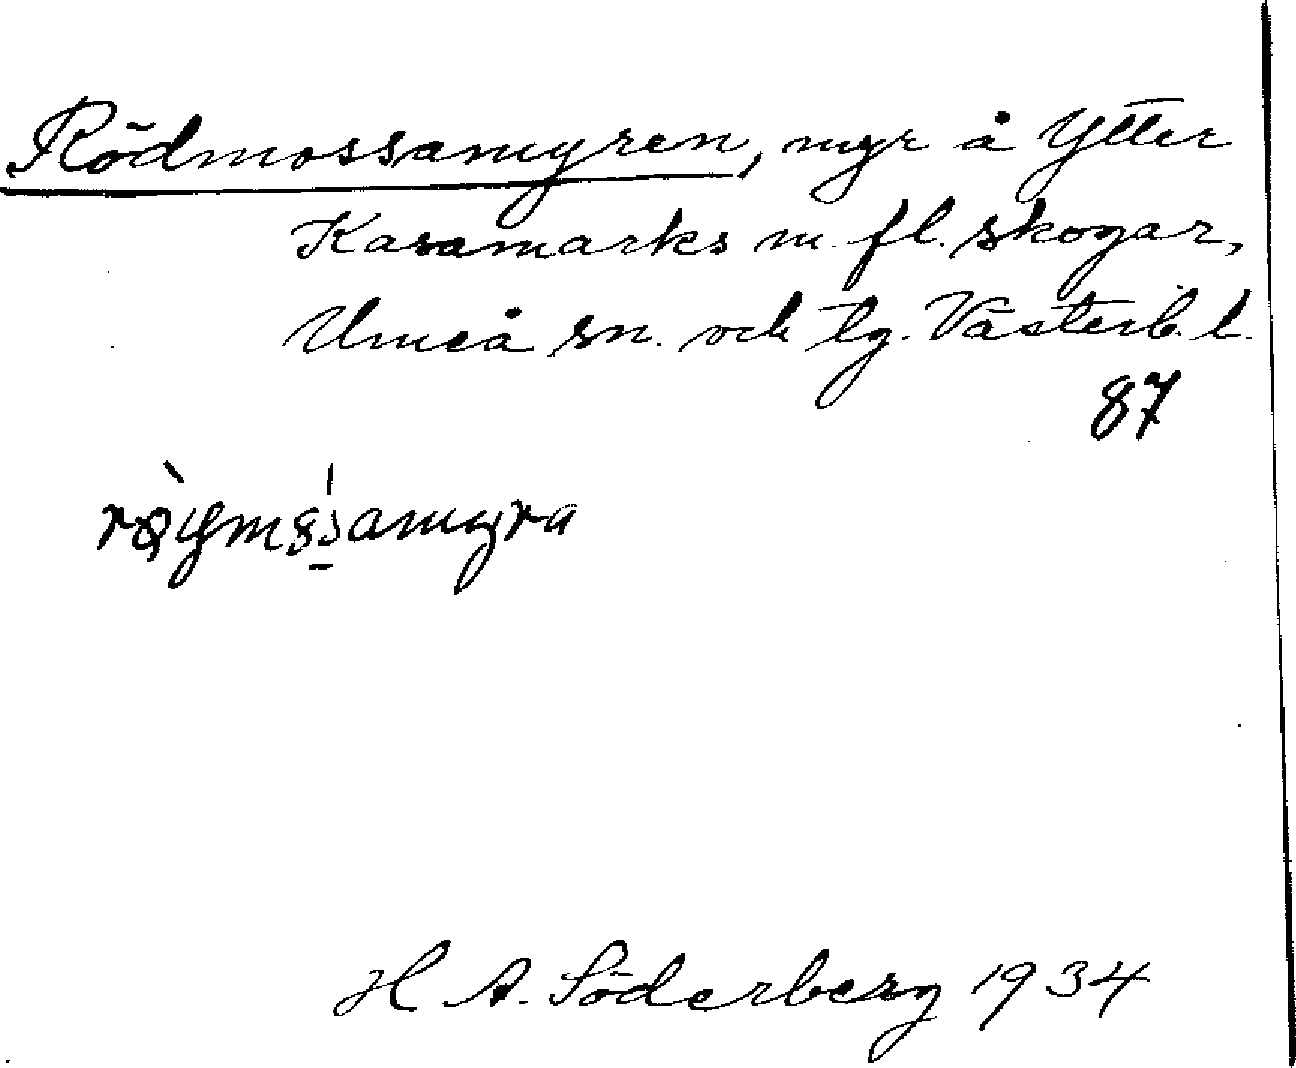 Rödmossamyren, myr å Ytter
Kasamarks m. fl. skogar,
Umeå sn. och tg. Västerb. l.
87
H A. Söderberg 1934